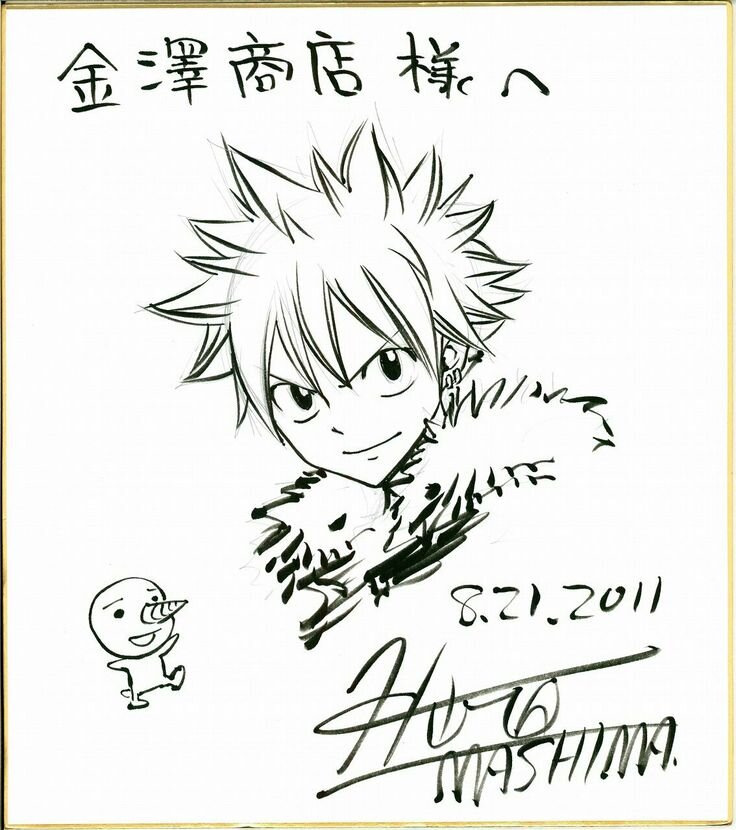 金澤商店様へ
8.21.2011
Hiro
MASHIMA.